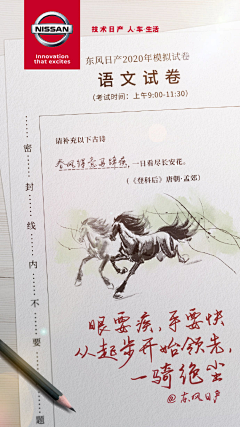 NISSAN
Innovation
that excites
技术日产 人·车·生活
东风日产2020年模拟试卷
语文试卷
(考试时间：上午9:00-11:30)
请补充以下古诗
春风得意马蹄疾，一日看尽长安花。
(《登科后》唐朝·孟郊)
密封线内不要
题
眼要疾，手要快
从起步开始领先，
一骑绝尘
@东风日产